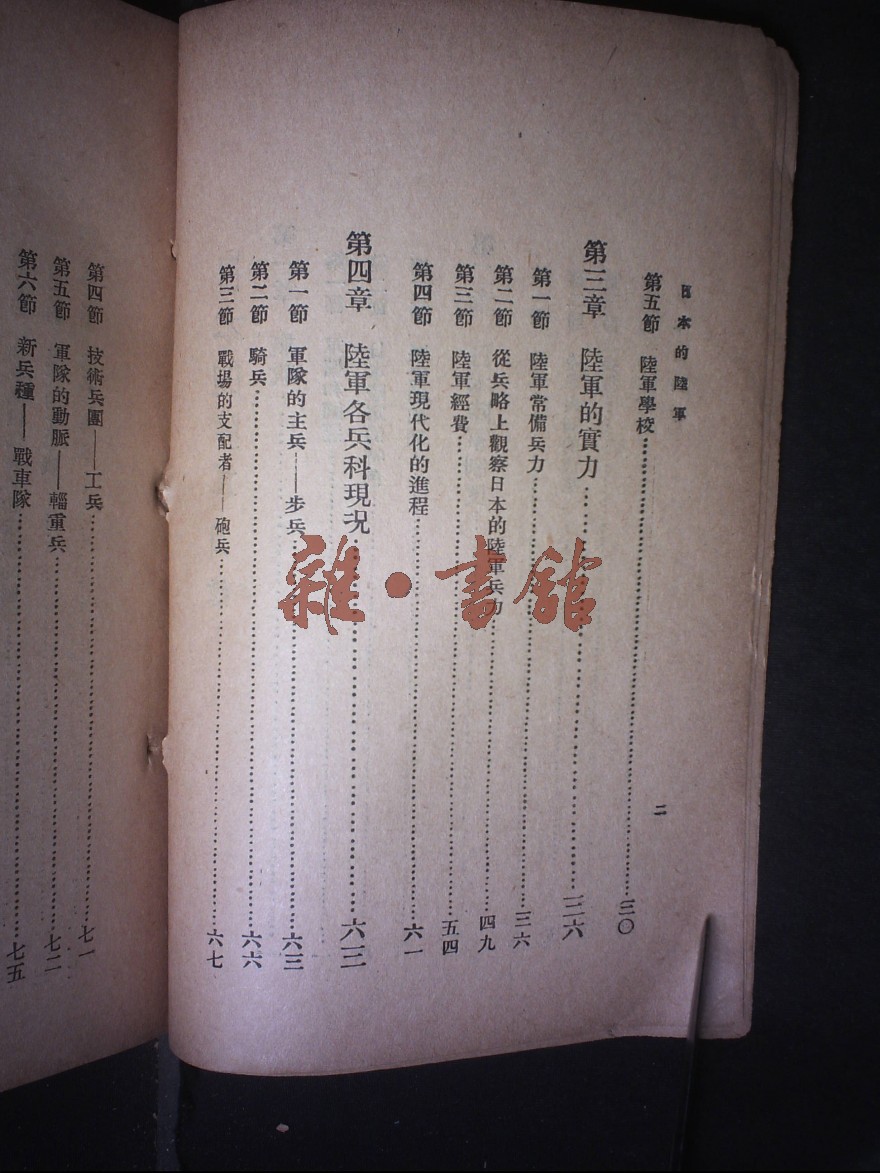 日本的陸軍
二
第五節 陸軍學校…………三〇
第三章 陸軍的實力…………三六
第一節 陸軍常備兵力…………三六
第二節 從兵略上觀察日本的陸軍兵力…………四九
第三節 陸軍經費…………五四
第四節 陸軍現代化的進程…………六一
第四章 陸軍各兵科現況…………六三
第一節 軍隊的主兵——步兵…………六三
第二節 騎兵…………六六
第三節 戰場的支配者——砲兵…………六七
第四節 技術兵團——工兵…………七一
第五節 軍隊的動脈——輜重兵…………七二
第六節 新兵種——戰車隊…………七五
雜·書館